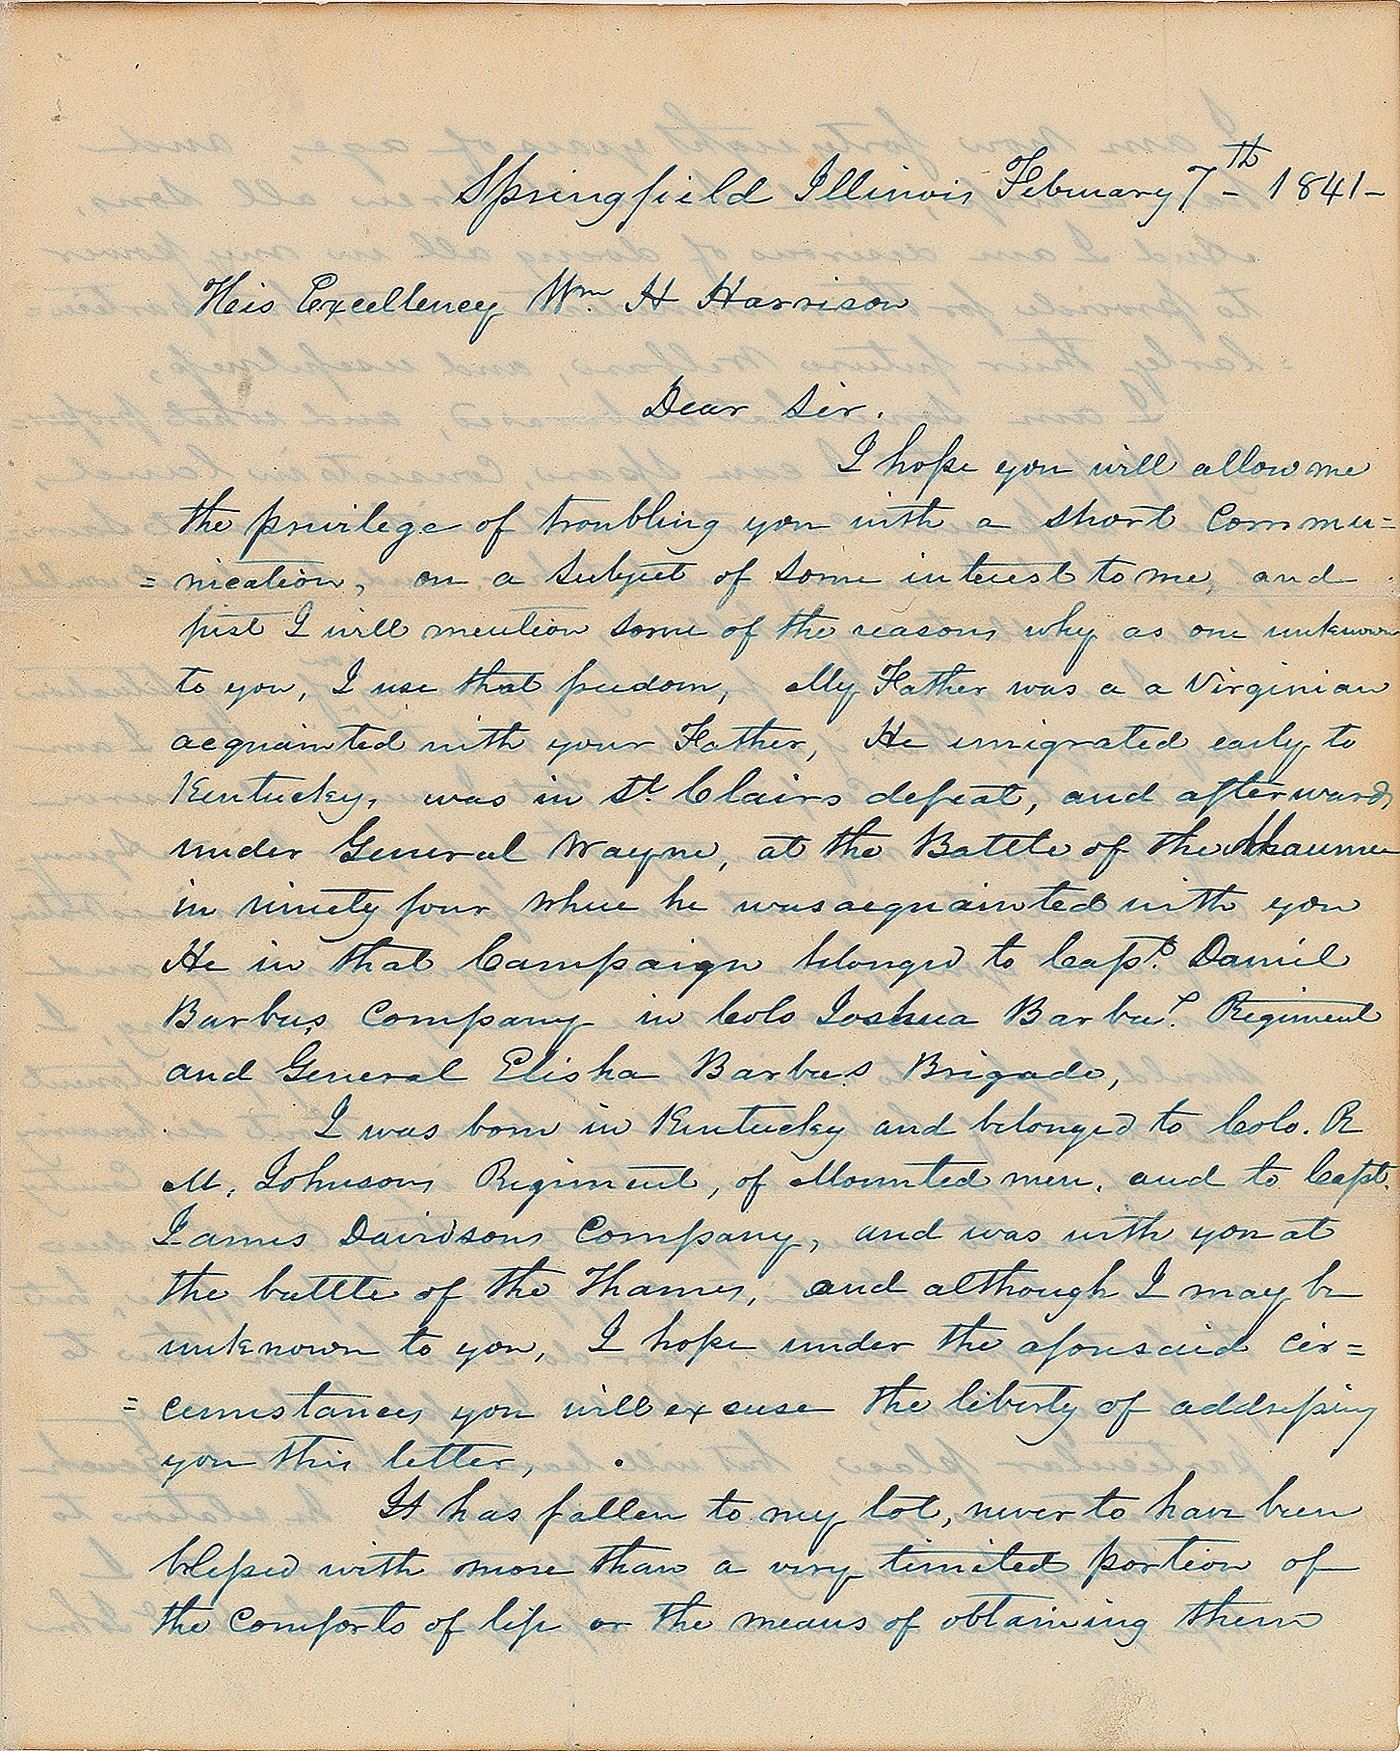 Springfield Illinois February 7th 1841-
His Excellency Wm H Harrison
Dear Sir.
I hope you will allow me
the privilege of troubling you with a short commu=
=nication, on a subject of some interest to me, and
first I will mention some of the reasons why as one unknown
to you, I use that freedom, My Father was a a Virginian
acquainted with your Father, He emigrated early to
Kentucky, was in St Clairs defeat, and afterwards
under General Wayne, at the Battle of the Maume
in ninety four where he was acquainted with you
He in that Campaign belonged to Capt. Daniel
Barbes Company in Colo Joshua Barbee's Regiment
and General Elisha Barbees Brigade,
I was born in Kentucky and belonged to Colo. R
M. Johnsons Regiment, of Mounted men, and to Capt.
James Davidsons Company, and was with you at
the battle of the Thames, and although I may be
unknown to you, I hope under the aforesaid cir=
=cumstances you will excuse the liberty of addressing
you this letter,
It has fallen to my lot, never to have been
blessed with more than a very limited portion of
the comforts of life or the means of obtaining them